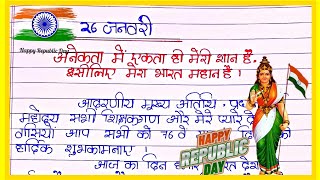 26 जनवरी
Happy Republic Day
अनेकता में एकता ही मेरी शान है,
इसीलिए मेरा भारत महान है।
आदरणीय मुख्य अतिथि,
महोदय सभी शिक्षकगण और मेरे प्यारे
आप सभी को 76 वें
हार्दिक शुभकामनाएं।
आज का दिन
HAPPY
REPUBLIC
DAY